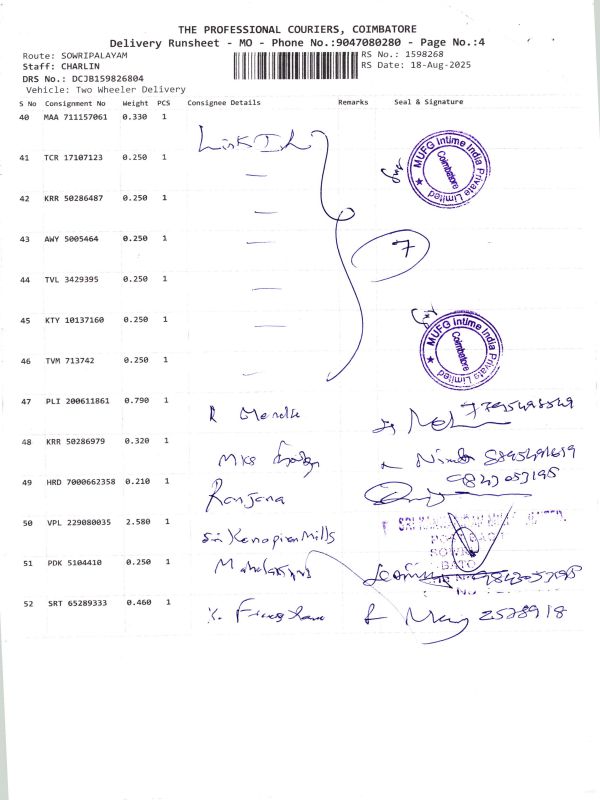 THE PROFESSIONAL COURIERS, COIMBATORE
Delivery Runsheet - MO - Phone No.:9047080280 - Page No.:4
Route: SOWRIPALAYAM
RS No.: 1598268
Staff: CHARLIN
RS Date: 18-Aug-2025
DRS No.: DCJB159826804
Vehicle: Two Wheeler Delivery
S No Consignment No Weight PCS Consignee Details Remarks Seal & Signature
40 MAA 711157061 0.330 1
Link
MUFG Intime India Private Limited
Coimbatore
41 TCR 17107123 0.250 1
42 KRR 50286487 0.250 1
43 AWY 5005464 0.250 1
7
44 TVL 3429395 0.250 1
45 KTY 10137160 0.250 1
MUFG Intime India Private Limited
Coimbatore
46 TVM 713742 0.250 1
47 PLI 200611861 0.790 1
48 KRR 50286979 0.320 1
MKS
49 HRD 7000662358 0.210 1
Ranjana 9843053195
50 VPL 229080035 2.580 1
Sri Kanapiran Mills
51 PDK 5104410 0.250 1
52 SRT 65289333 0.460 1
2578918